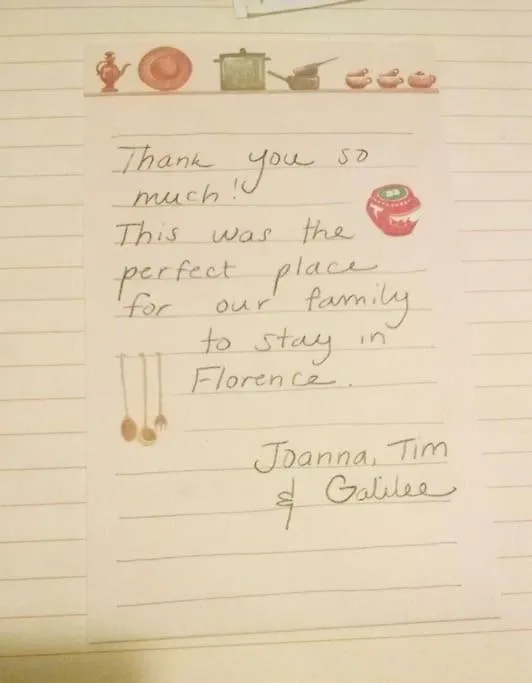 Thank you so
much!
This was the
perfect place
for our family
to stay in
Florence.
Joanna, Tim
& Galilee